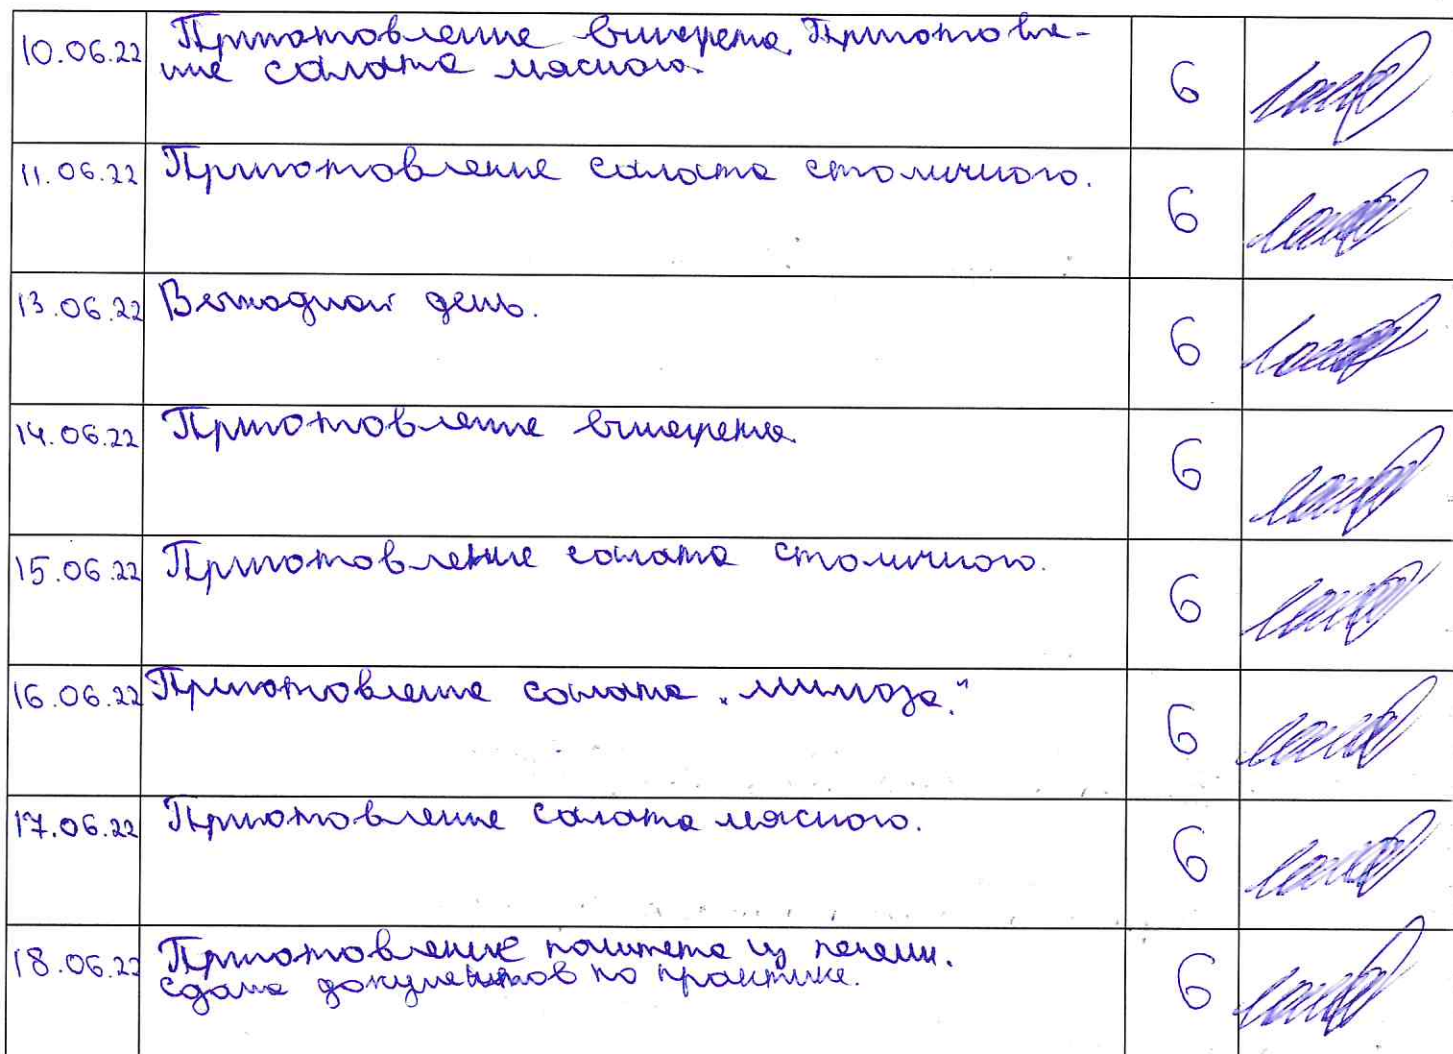 10.06.22 Приготовление винегрета. Приготовле-
ние салата мясного. 6
11.06.22 Приготовление салата столичного. 6
13.06.22 Выходной день. 6
14.06.22 Приготовление винегрета. 6
15.06.22 Приготовление салата столичного. 6
16.06.22 Приготовление салата "мимоза." 6
17.06.22 Приготовление салата мясного. 6
18.06.22 Приготовление паштета из печени. 6
сдача документов по практике.